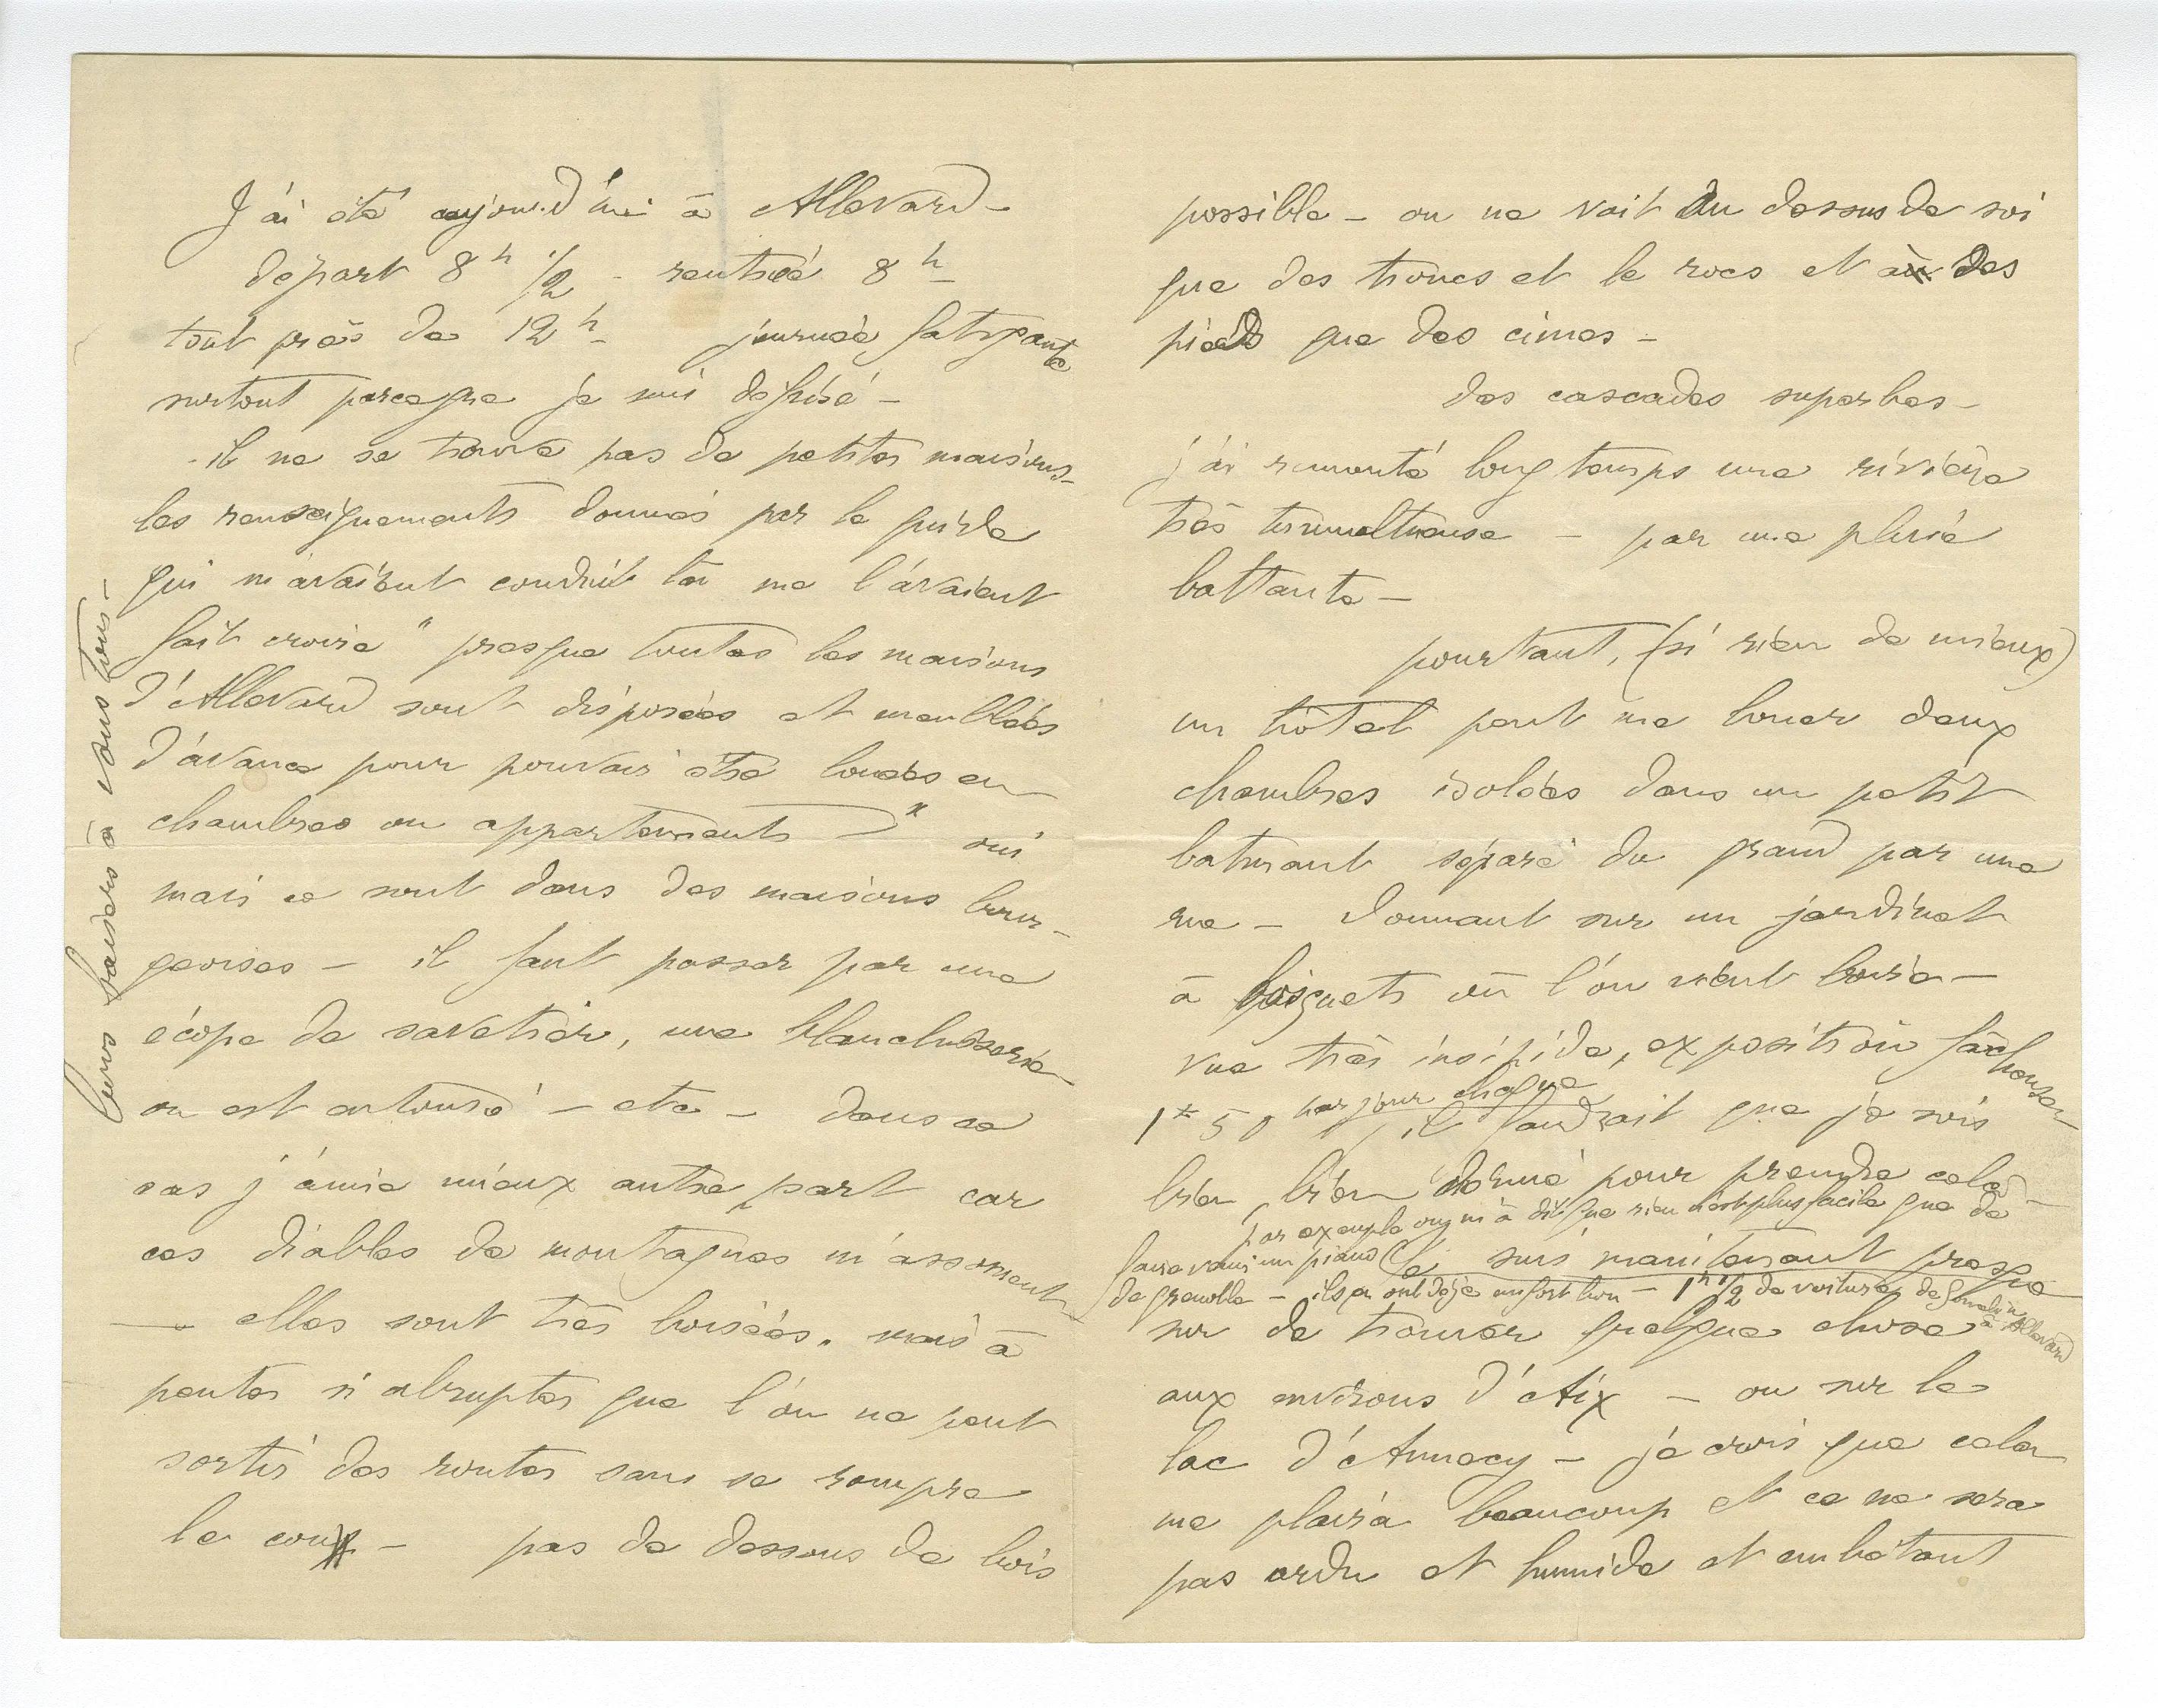 J'ai été aujourd'hui à Allevard -
départ 8 h 1/2 - rentrée 8 h -
tout près de 12 h - journée fatigante
surtout parceque je suis défrisé -
- il ne se trouve pas de petites maisons -
les renseignements donnés par le guide
qui m'avaient conduit là me l'avaient
fait croire " presque toutes les maisons
d'Allevard sont disposées et meublées
d'avance pour pouvoir être louées en
chambres ou appartements " oui
mais ce sont dans des maisons bour-
geoises - il faut passer par une
écope de savetier, une blanchisserie
on est entouré - etc - dans ce
cas j'aime mieux autre part car
ces diables de montagnes m'assomment
- elles sont très boisées. mais à
pentes si abruptes que l'on ne peut
sortir des routes sans se rompre
le cou - pas de dessous de bois
bons baisers à vous tous -
possible - on ne voit au dessus de soi
que des troncs et le rocs et des
pieds que des cimes -
des cascades superbes -
j'ai remonté longtemps une rivière
très tumultueuse - par une pluie
battante -
pourtant, (si rien de mieux)
un hôtel peut me louer deux
chambres isolées dans un petit
batiment séparé du grand par une
rue - donnant sur un jardinet
à bosquets où l'on vient boire -
vue très insipide, exposition fâcheuse -
1 f 50 par jour chaque
il faudrait que je sois
bien, bien dominé pour prendre cela -
par exemple on m'a dit que rien n'est plus facile que de
faire venir un piano
de grenoble - ils en ont déjà un fort bon - 1 h 1/2 de voiture de Goncelin
à Allevard
Je suis maintenant presque
sur de trouver quelque chose
aux environs d'Aix - ou sur le
lac d'Annecy - je crois que cela
me plaira beaucoup et ce ne sera
pas ardu et humide et embêtant